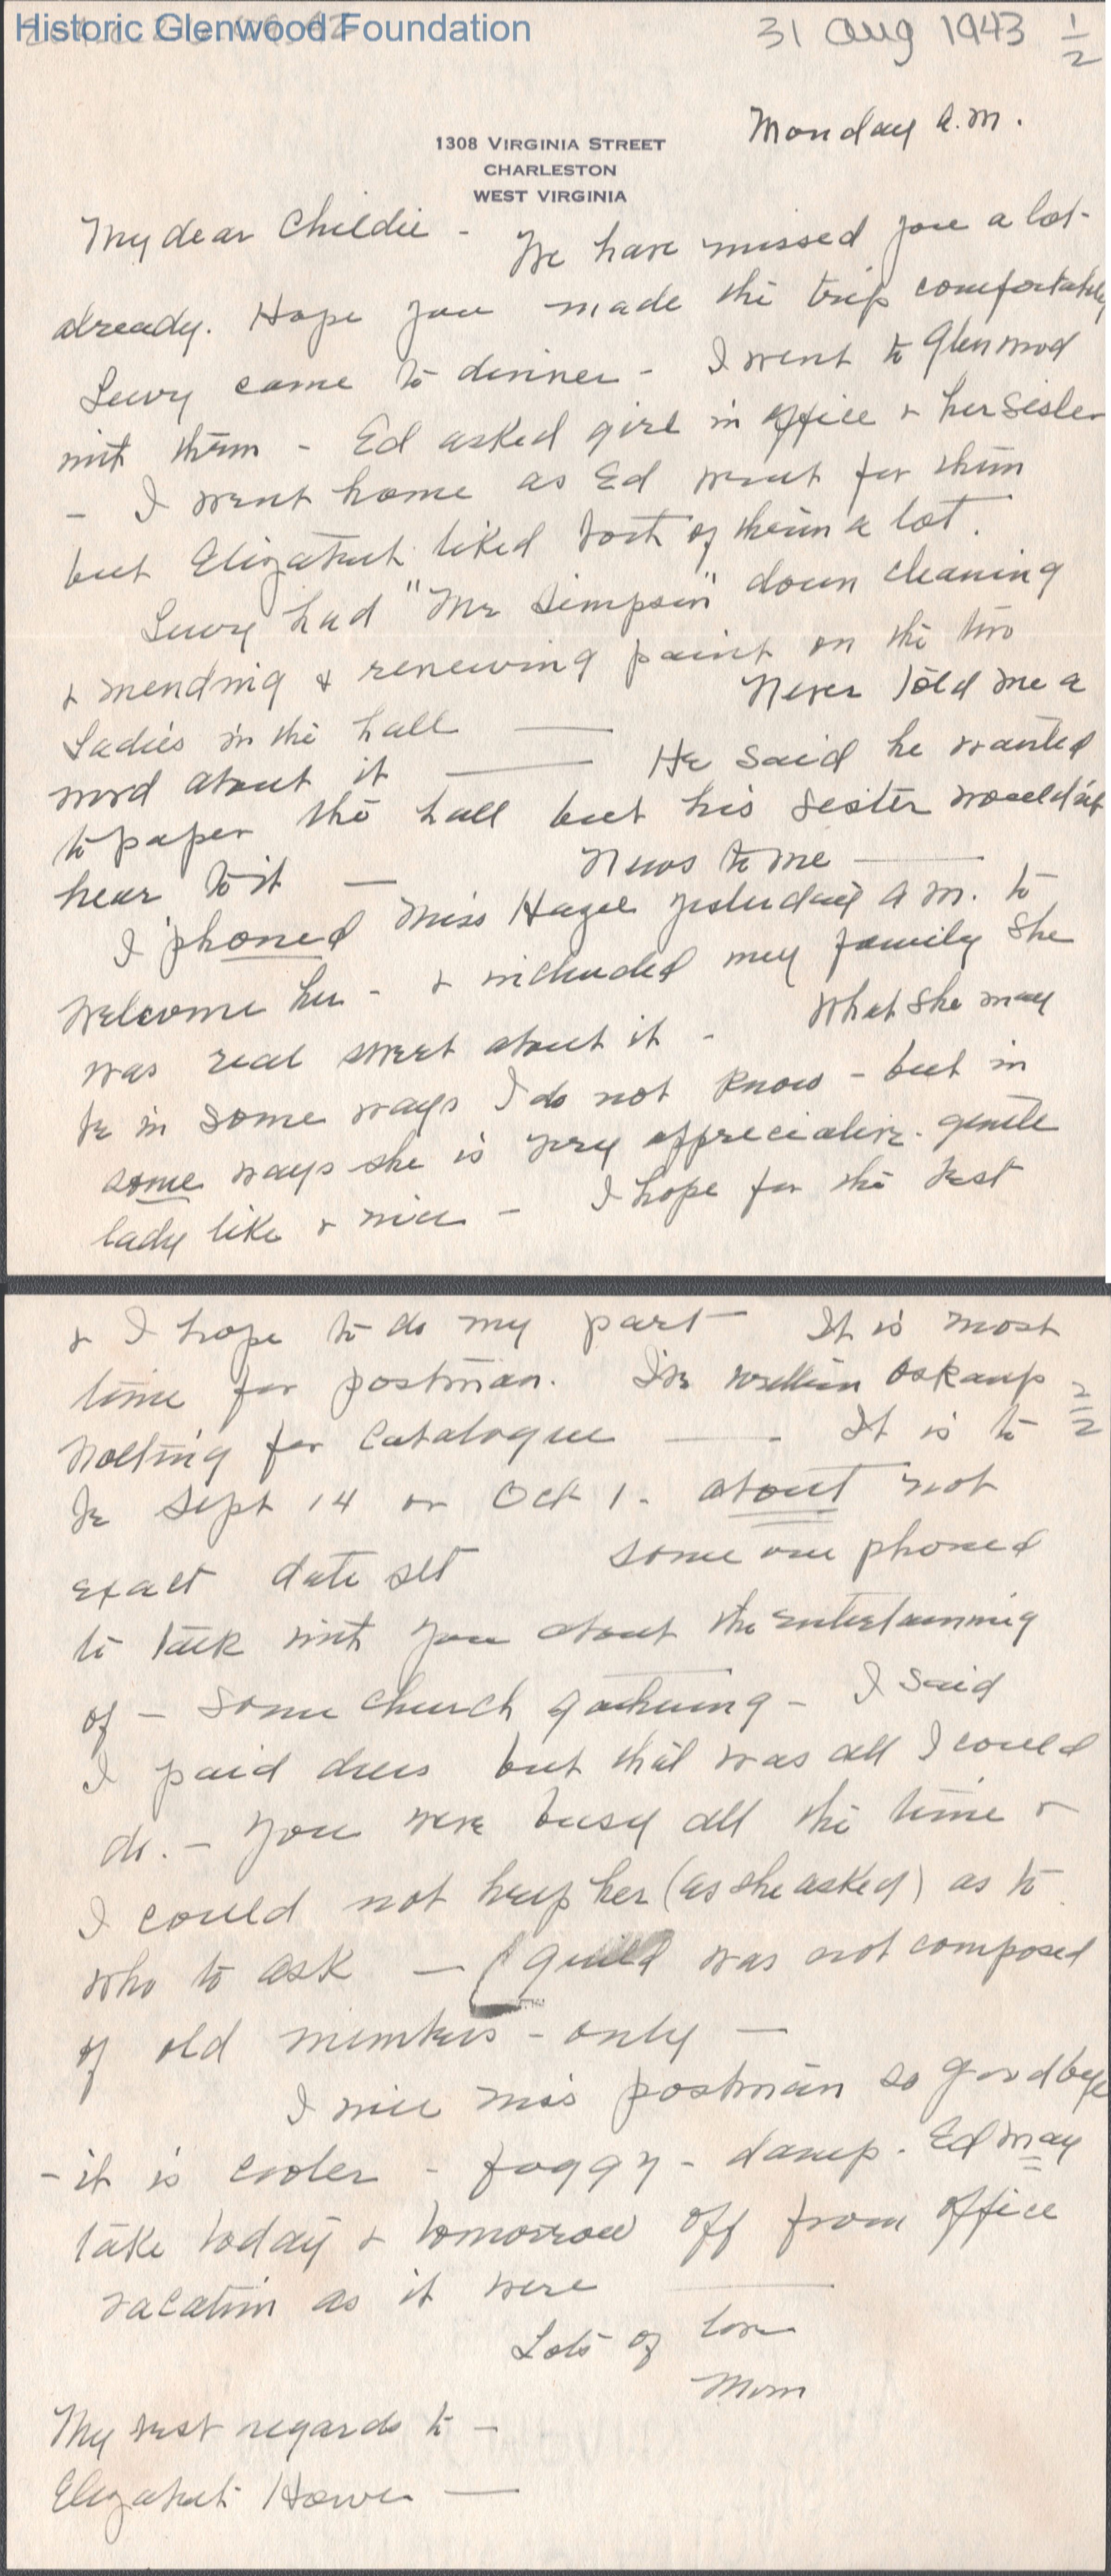 Historic Glenwood Foundation
31 Aug 1943 1/2
Monday A.M.
1308 VIRGINIA STREET
CHARLESTON
WEST VIRGINIA
My dear Childie - We have missed you a lot-
already. Hope you made the trip comfortably
Lewy came to dinner - I went to Glenwood
with them - Ed asked girl in office & her sister
- I went home as Ed went for them
but Elizabeth liked both of them a lot.
Lewy had "Mr Simpson" down cleaning
& mending & renewing paint on the two
Ladies in the hall — Never told me a
word about it — He said he wanted
to paper the hall but his sister wouldn't
hear to it — News to me —
I 'phoned Miss Hazel yesterday A.M. to
welcome her - & included my family She
was real sweet about it - What she may
be in some ways I do not know - but in
some ways she is very appreciative - gentle
lady like & nice - I hope for the best
& I hope to do my part — It is most
time for postman. I've written Oskamp
2/2
Nolting for Catalogue — . It is to
be Sept 14 or Oct 1 - about not
exact date set some one phoned
to talk with you about the entertaining
of - some church gathering - I said
I paid dues but that was all I could
do. - You were busy all the time &
I could not help her (as she asked) as to
who to ask — (guild was not composed
of old members - only —
I will miss postman so goodbye
- it is cooler - foggy - damp. Ed may
take today & tomorrow off from office
vacation as it were —
Lots of love
Mom
My best regards to -
Elizabeth Howe —